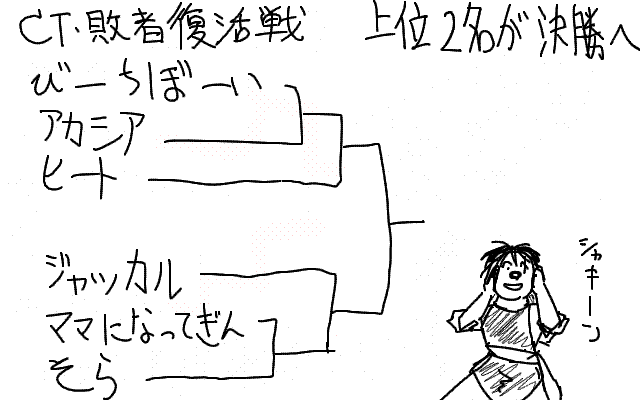 CT・敗者復活戦 上位2名が決勝へ
びーちぼーい
アカシア
ヒート
ジャッカル
ママになってぎん
そら
ジャキーン